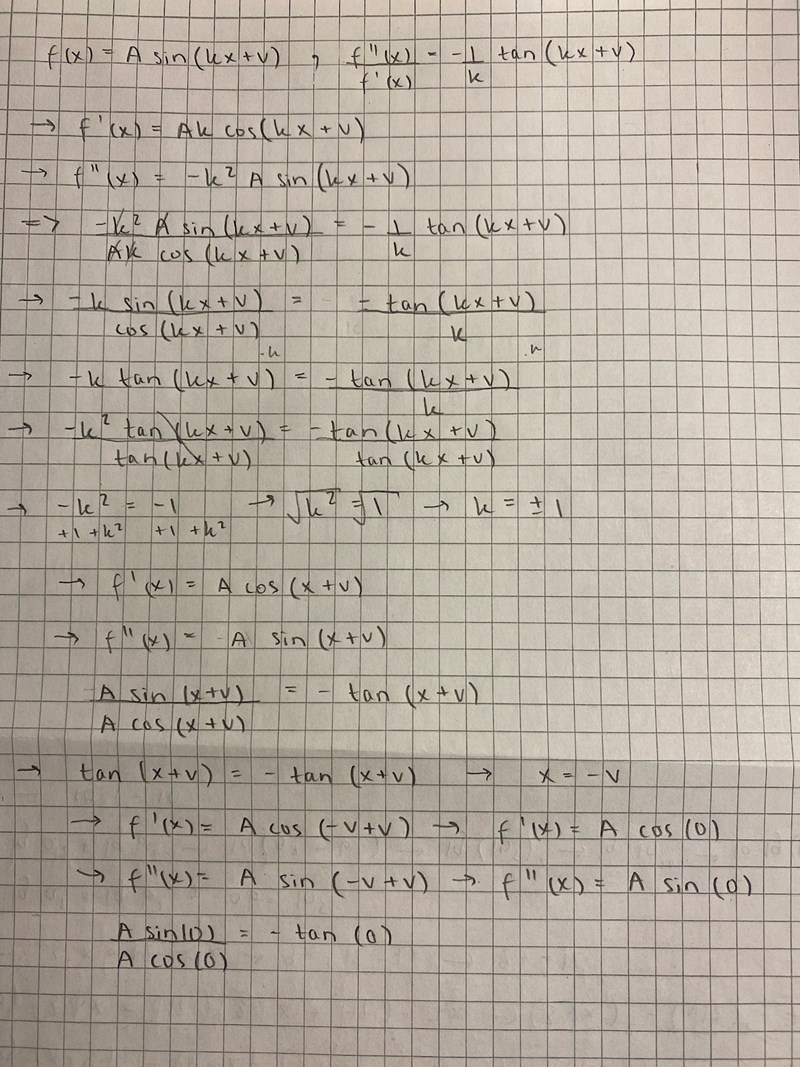 f(x) = A sin(kx+v) , f''(x)/f'(x) = -1/k tan(kx+v)
→ f'(x) = Ak cos(kx+v)
→ f''(x) = -k² A sin(kx+v)
=> -k² A sin(kx+v)/Ak cos(kx+v) = -1/k tan(kx+v)
→ -k sin(kx+v)/cos(kx+v) = -tan(kx+v)/k
→ -k tan(kx+v) ·k = -tan(kx+v)/k ·k
→ -k² tan(kx+v)/tan(kx+v) = -tan(kx+v)/tan(kx+v)
→ -k² = -1 → √k² = √1 → k = ±1
+1 +k² +1 +k²
→ f'(x) = A cos(x+v)
→ f''(x) = A sin(x+v)
A sin(x+v)/A cos(x+v) = - tan(x+v)
→ tan(x+v) = - tan(x+v) → x = -v
→ f'(x) = A cos(-v+v) → f'(x) = A cos(0)
→ f''(x) = A sin(-v+v) → f''(x) = A sin(0)
A sin(0)/A cos(0) = - tan(0)